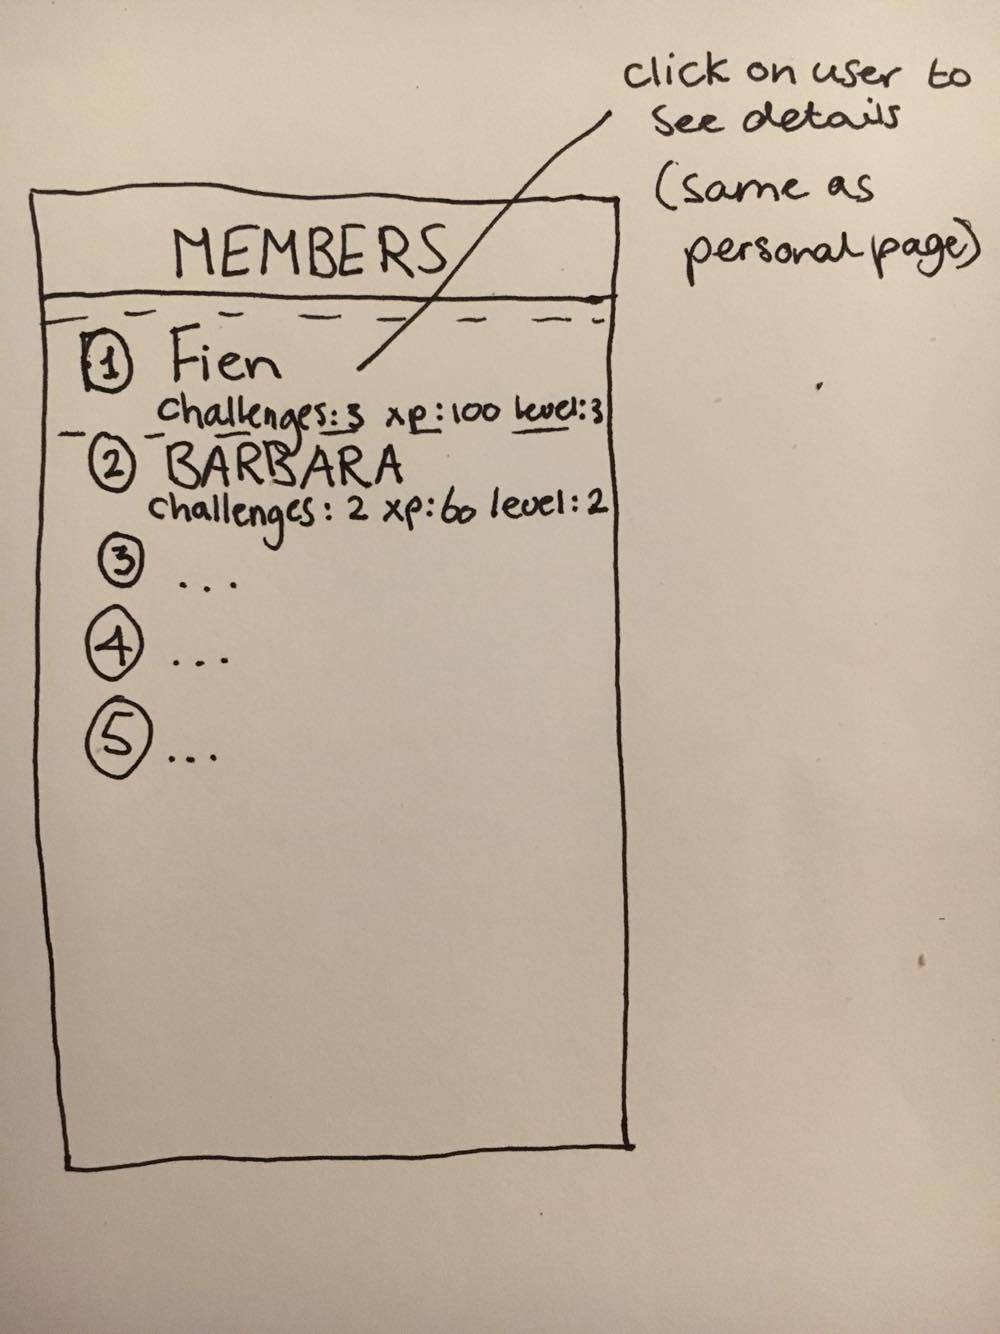 click on user to
see details
(same as
personal page)
MEMBERS
1 Fien
challenges: 3 xp: 100 level: 3
2 BARBARA
challenges: 2 xp: 60 level: 2
3 ...
4 ...
5 ...